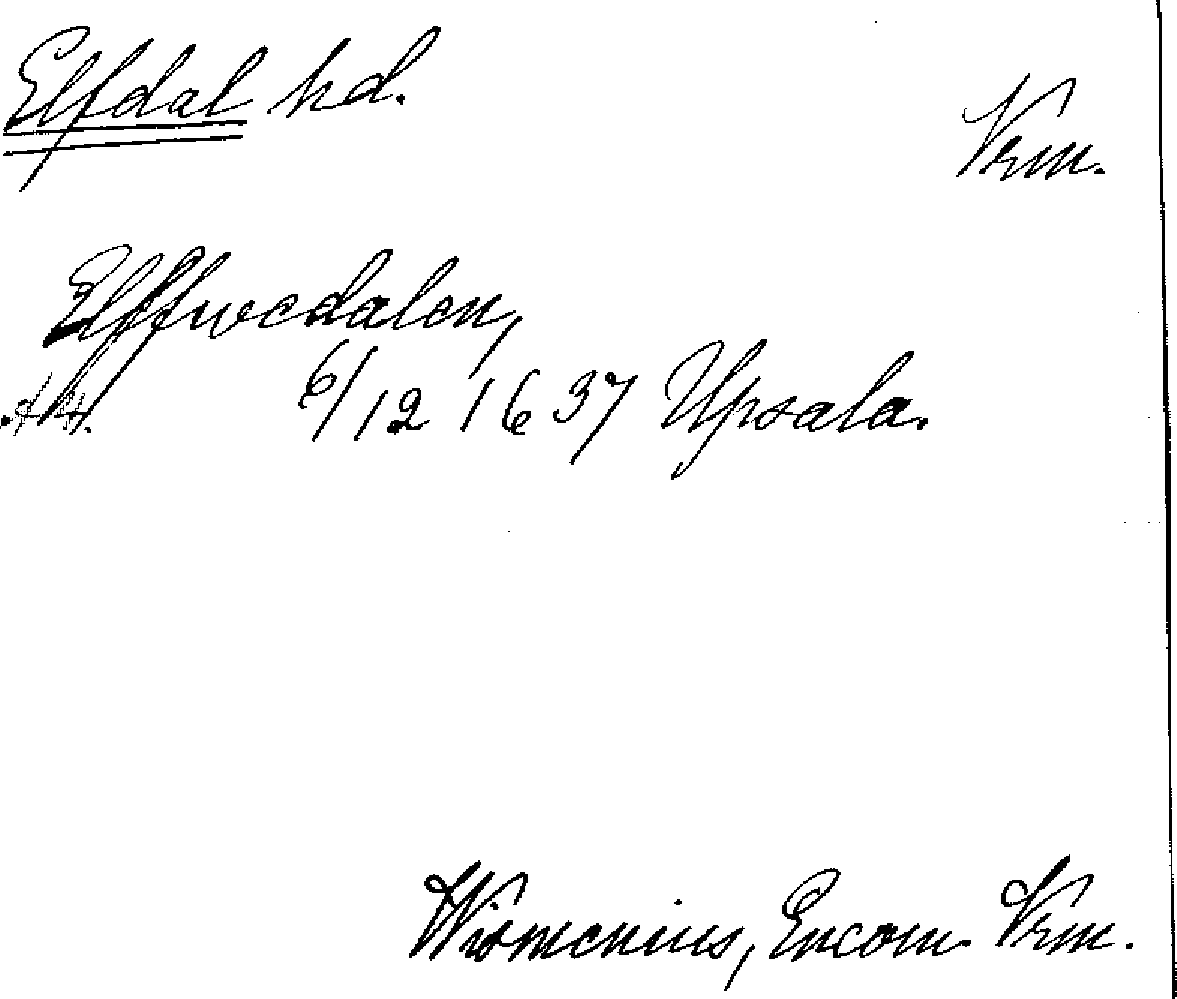 Elfdal hd.
Vrm.
Elffwedalen,
6/12 1637 Upsala.
Wismenius, Encom. Vrm.